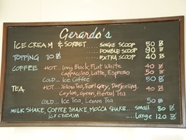 Gerardo's
ICE CREAM & SORBET SINGLE SCOOP 50 ฿
DOUBLE SCOOP 90 ฿
TOPPING 10 ฿ EXTRA SCOOP 40 ฿
COFFEE HOT... Long Black, Flat White 40 ฿
Cappuccino, Latte, Espresso 50 ฿
COLD... Ice Coffee 50 ฿
TEA HOT... Earl Grey, Darjeeling,
Ceylon, Green, Herbal Tea 40 ฿
COLD... Ice Tea, Lemon Tea 50 ฿
MILK SHAKE, COFFEE SHAKE, MOCCA SHAKE, Small
ICE CREAM Large 120 ฿